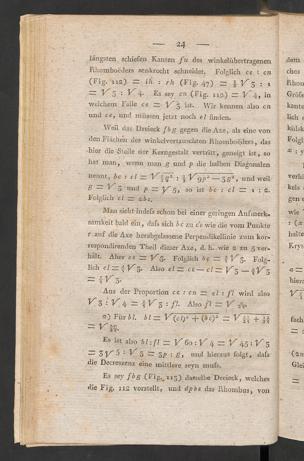 — 24 —
längsten schiefen Kanten fu des winkelübertragenen
Rhomboëders senkrecht schneidet. Folglich ce : cn
(Fig. 112) = ih : rh (Fig. 47) = ½ √5 : 1
= √5 : √4. Es sey cn (Fig. 112) = √4, in
welchem Falle ce = √5 ist. Wir kennen also cn
und ce, und müssen jetzt noch el finden.
Weil das Dreieck fbg gegen die Axe, als eine von
den Flächen des winkelvertauschten Rhomboëders, das
hier die Stelle der Kerngestalt vertritt, geneigt ist, so
hat man, wenn man g und p die halben Diagonalen
nennt, bc : cl =
g = √3 und p = √5, so ist bc : cl = 1 : 2.
Folglich cl = 2bc.
Man sieht indess schon bei einer geringen Aufmerk-
samkeit bald ein, dass sich bc zu cs wie die vom Punkte
r auf die Axe herabgelassene Perpendikulärlinie zum kor-
respondirenden Theil dieser Axe, d. h. wie 2 zu 5 ver-
hält. Aber cs = √5. Folglich bc = ⅖ √5. Folg-
lich cl = ⅘ √5. Also el = ce — cl = √5 — ⅘ √5
= ⅕ √5.
Aus der Proportion ce : cn = el : fl wird also
√5 : √4 = ⅕ √5 : fl. Also fl =
a) Für bl. bl = √(cl)² + (bc)² =
Es ist also bl : fl = √60 : √4 = √45 : √3
= 3√5 : √3 = 3p : g, und hieraus folgt, dass
die Decrescenz eine mittlere seyn muss.
Es sey fbg (Fig. 113) dasselbe Dreieck, welches
die Fig. 112 vorstellt, und dpbs das Rhombus, von